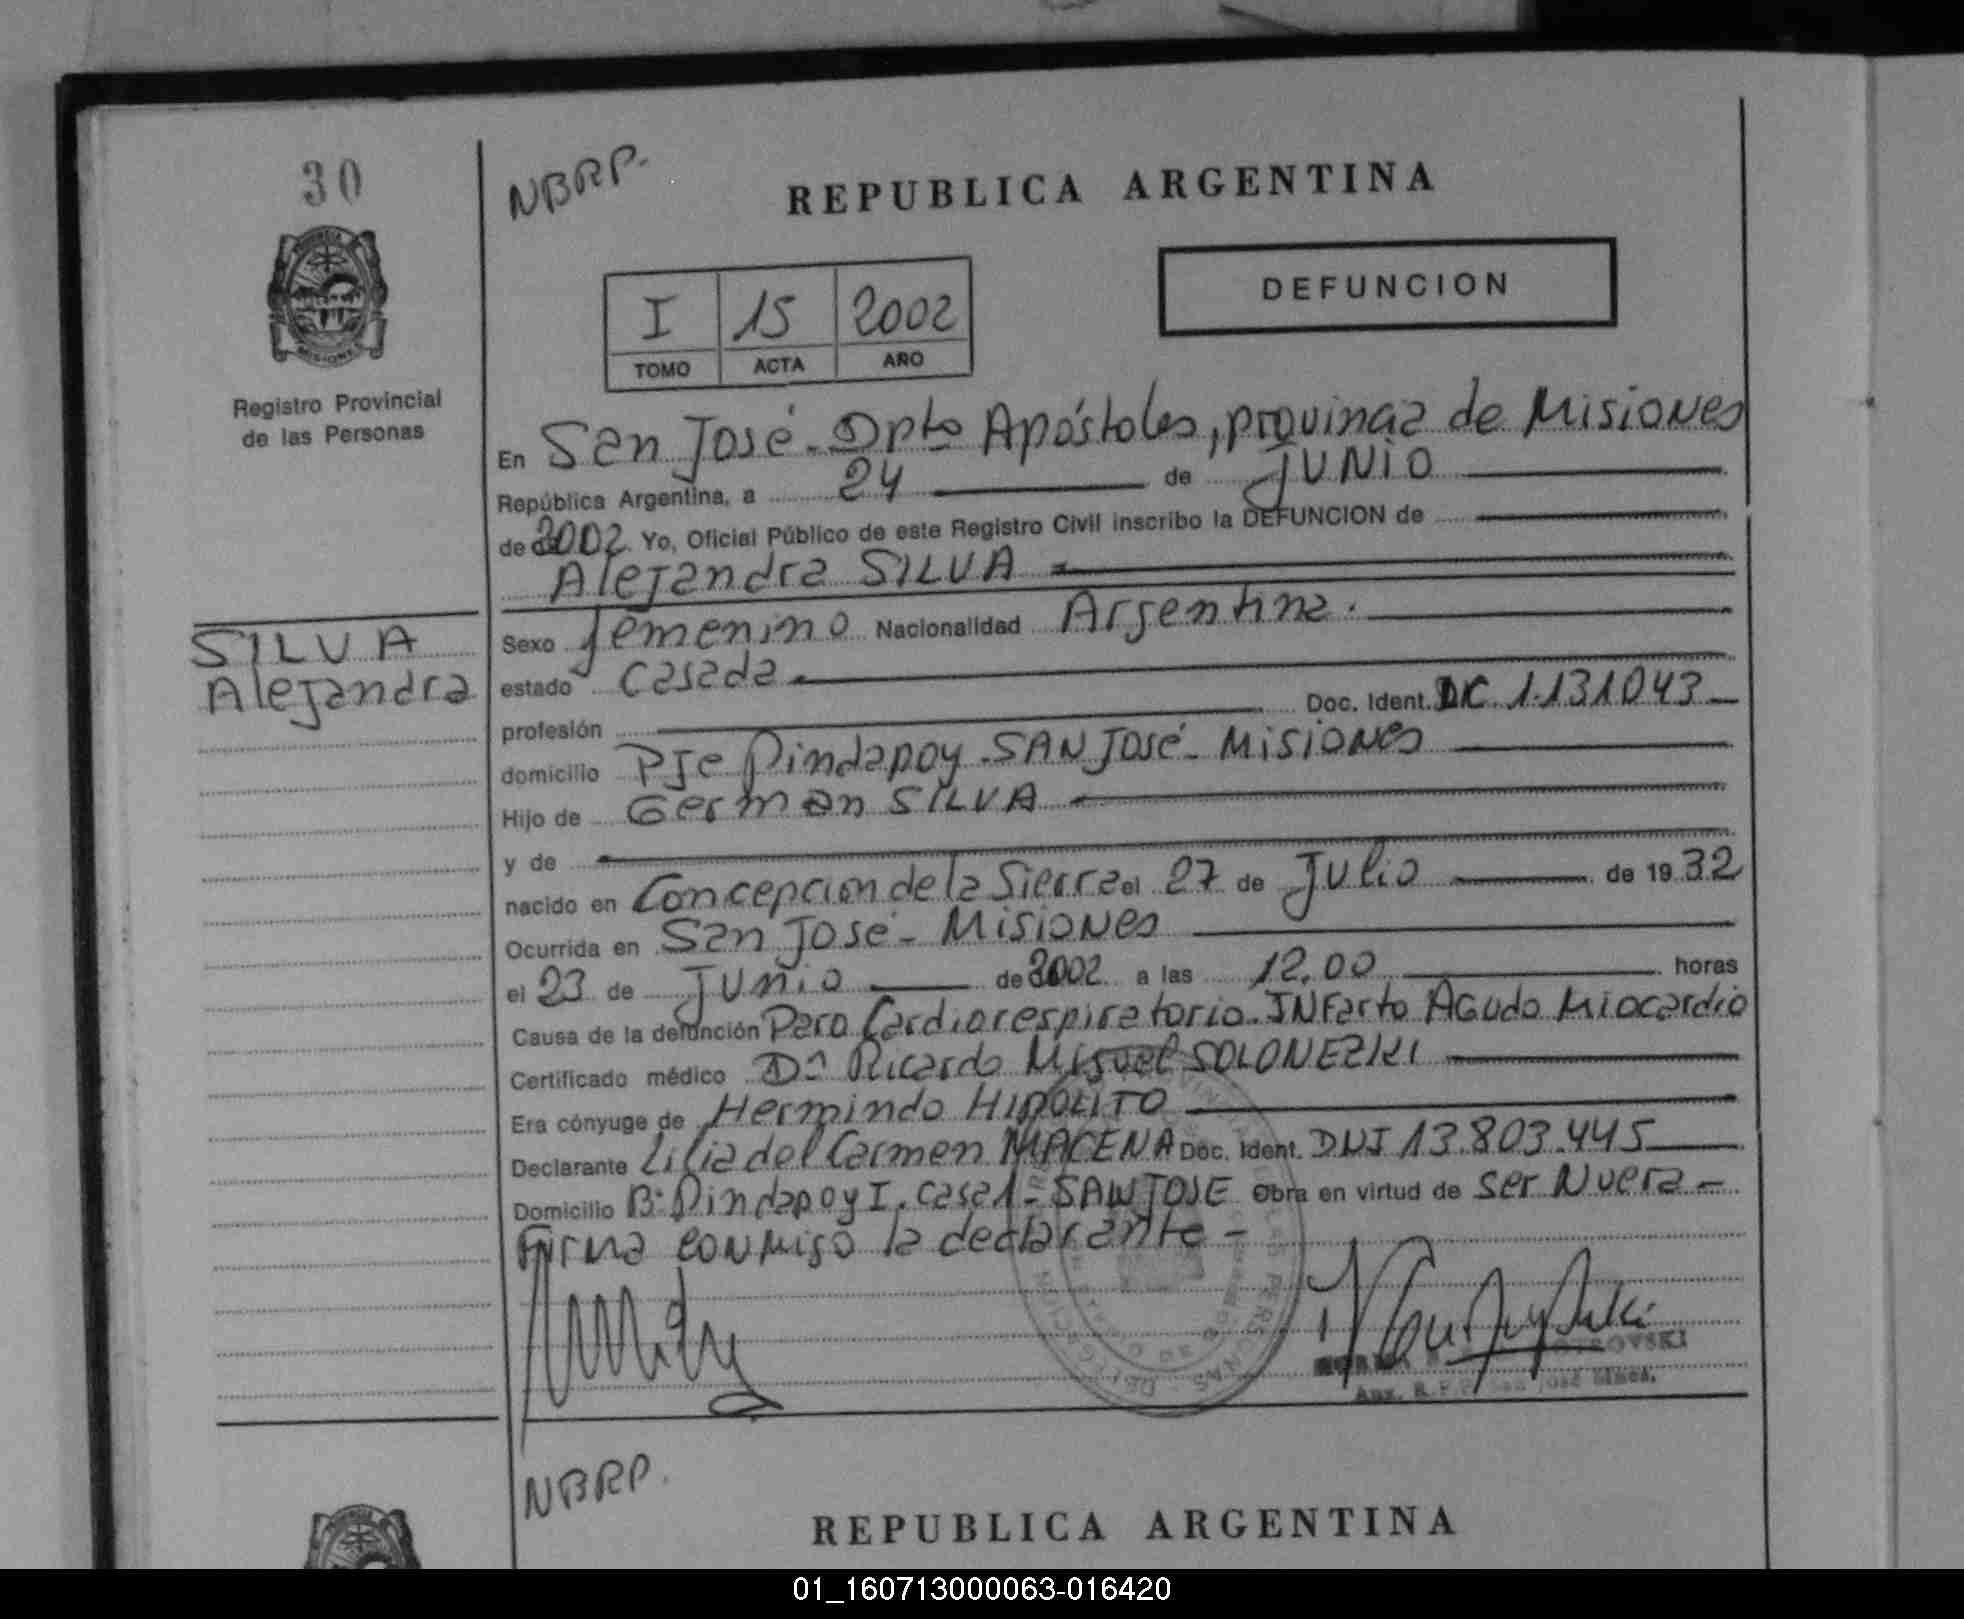 30
NBRP.
REPUBLICA ARGENTINA
DEFUNCION
I 15 2002
TOMO ACTA AÑO
MISIONES
Registro Provincial
de las Personas
En San José - Dpto Apóstoles, provincia de Misiones
República Argentina, a 24 de Junio
de 2002. Yo, Oficial Público de este Registro Civil inscribo la DEFUNCION de
Alejandra SILVA
SILVA
Alejandra
Sexo femenino Nacionalidad Argentina.
estado Casada
profesión Doc. Ident. DC. 1.131043
domicilio Pje Pindapoy - SAN José - Misiones
Hijo de German SILVA
y de
nacido en Concepcion de la Sierra el 27 de Julio de 1932
Ocurrida en San José - Misiones
el 23 de Junio de 2002 a las 12.00 horas
Causa de la defunción Paro Cardiorespiratorio. INFarto AGudo Miocardio
Certificado médico Dr Ricardo Miguel SOLONEZKI
Era cónyuge de Hermindo HIPOLITO
Declarante Lilia del Carmen MACENA Doc. Ident. DNI 13.803.445
Domicilio B: Pindapoy I. Casa 1 - SAN JOSE Obra en virtud de ser Nuera -
Firma conmigo la declarante -
NBRP.
REPUBLICA ARGENTINA
01_160713000063-016420